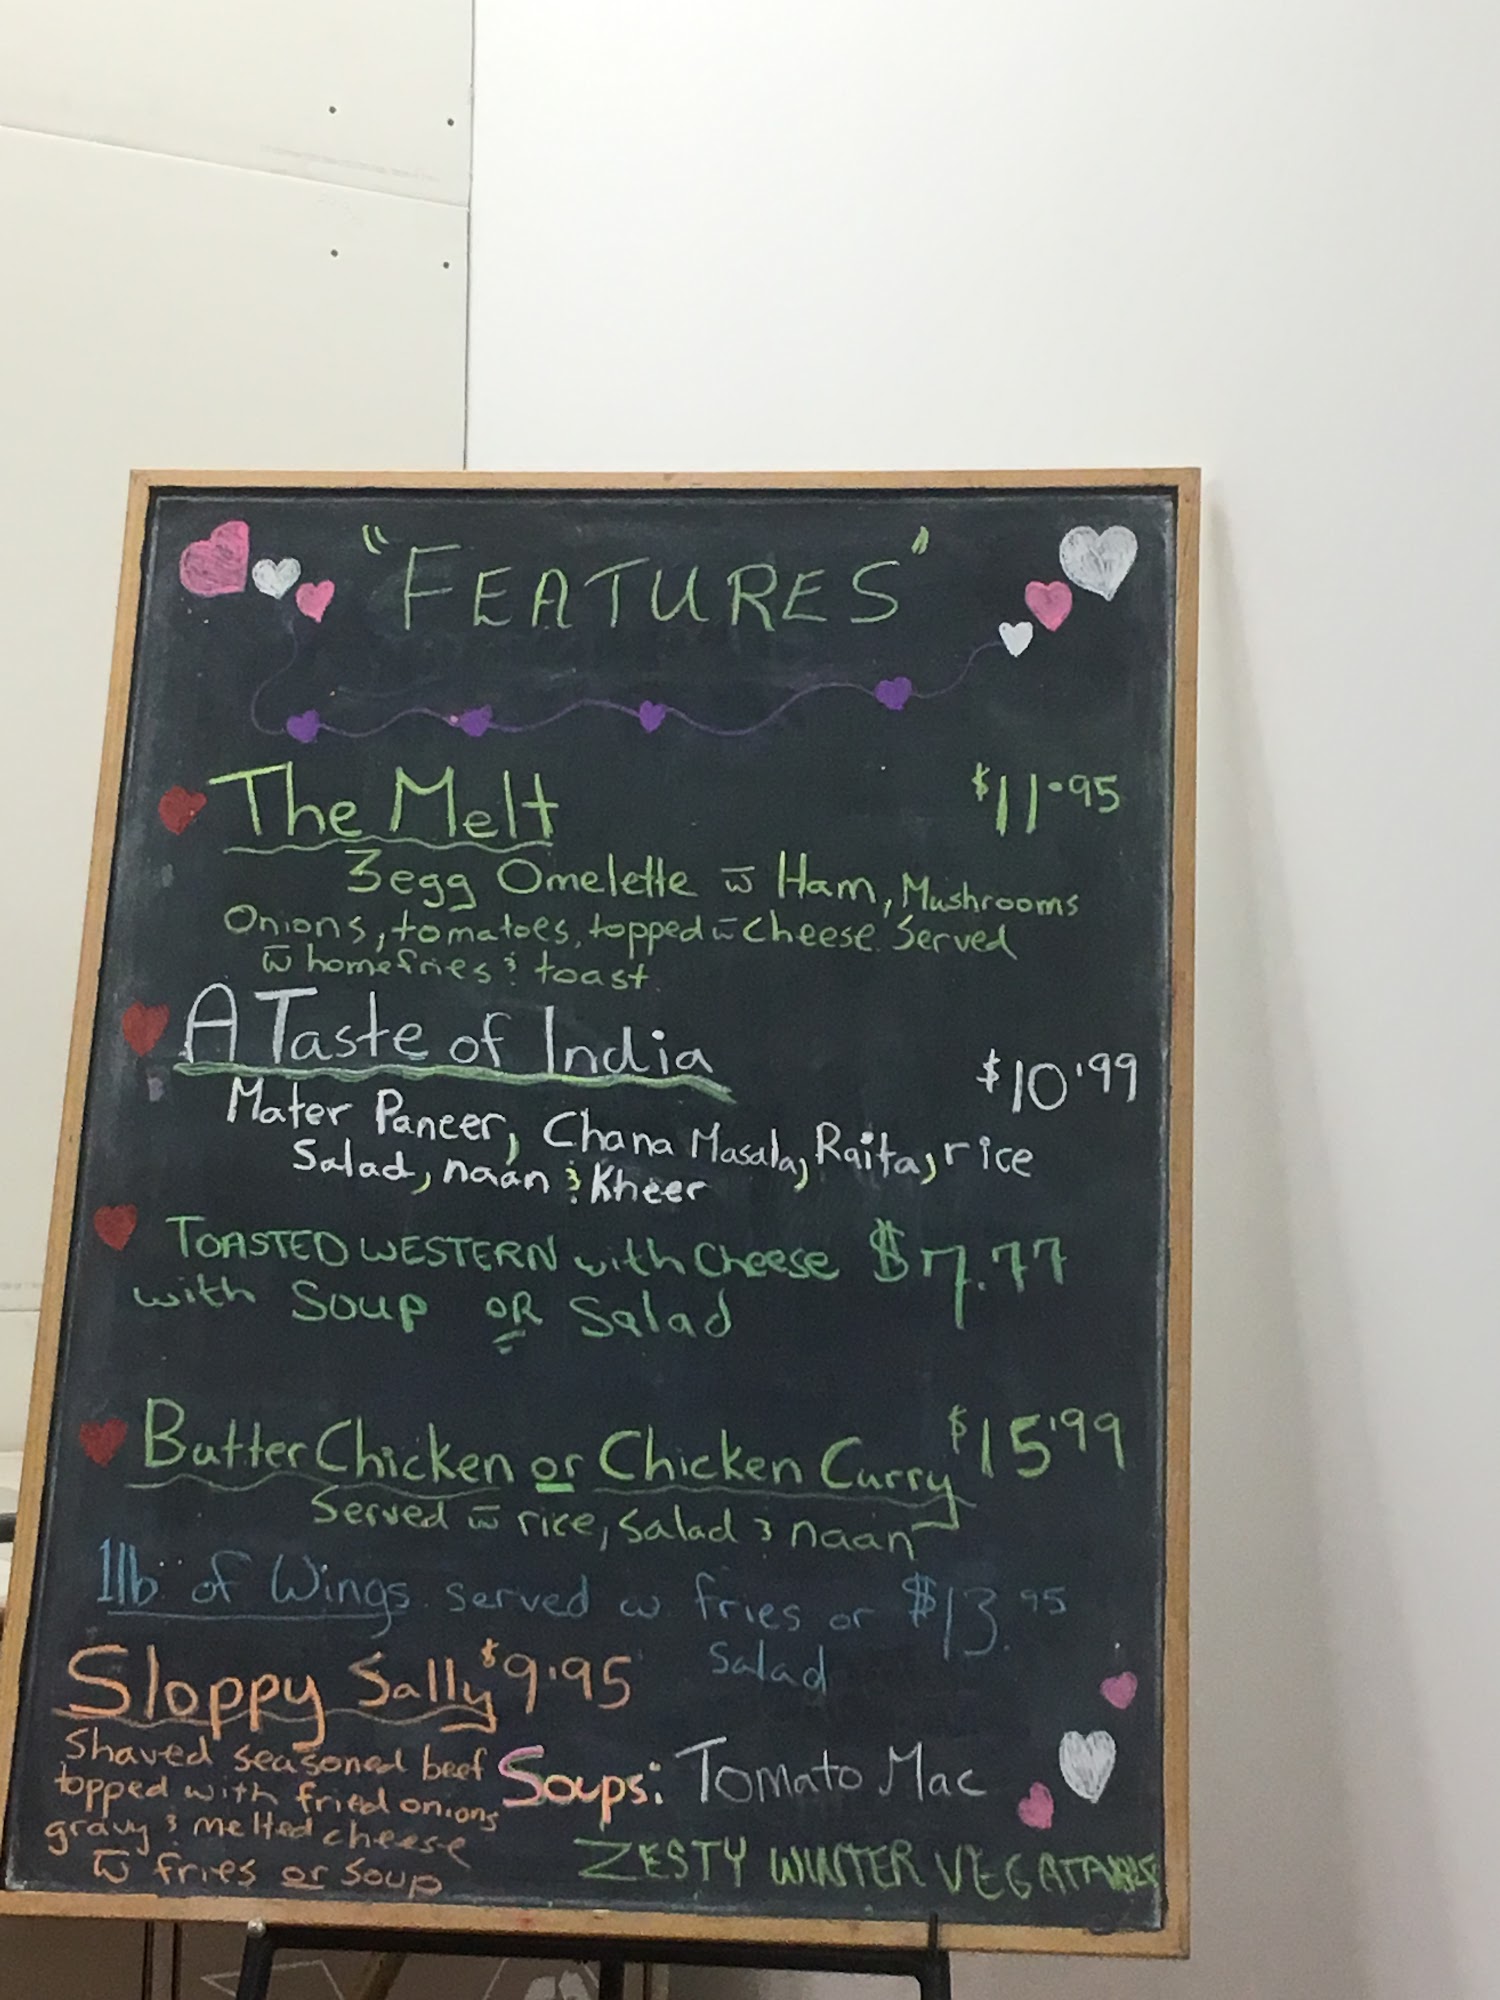 "FEATURES"
The Melt $11.95
3egg Omelette w̅ Ham, Mushrooms
Onions, tomatoes, topped w̅ cheese. Served
w̅ homefries & toast.
A Taste of India $10.99
Mater Paneer, Chana Masala, Raita, rice
Salad, naan & Kheer
TOASTED WESTERN with Cheese $7.77
with Soup OR Salad
Butter Chicken or Chicken Curry $15.99
Served w̅ rice, salad & naan
1lb of Wings served w fries or $13.95
salad
Sloppy Sally $9.95
Shaved seasoned beef
topped with fried onions
gravy & melted cheese
w̅ fries or soup
Soups: Tomato Mac
ZESTY WINTER VEGATABLE